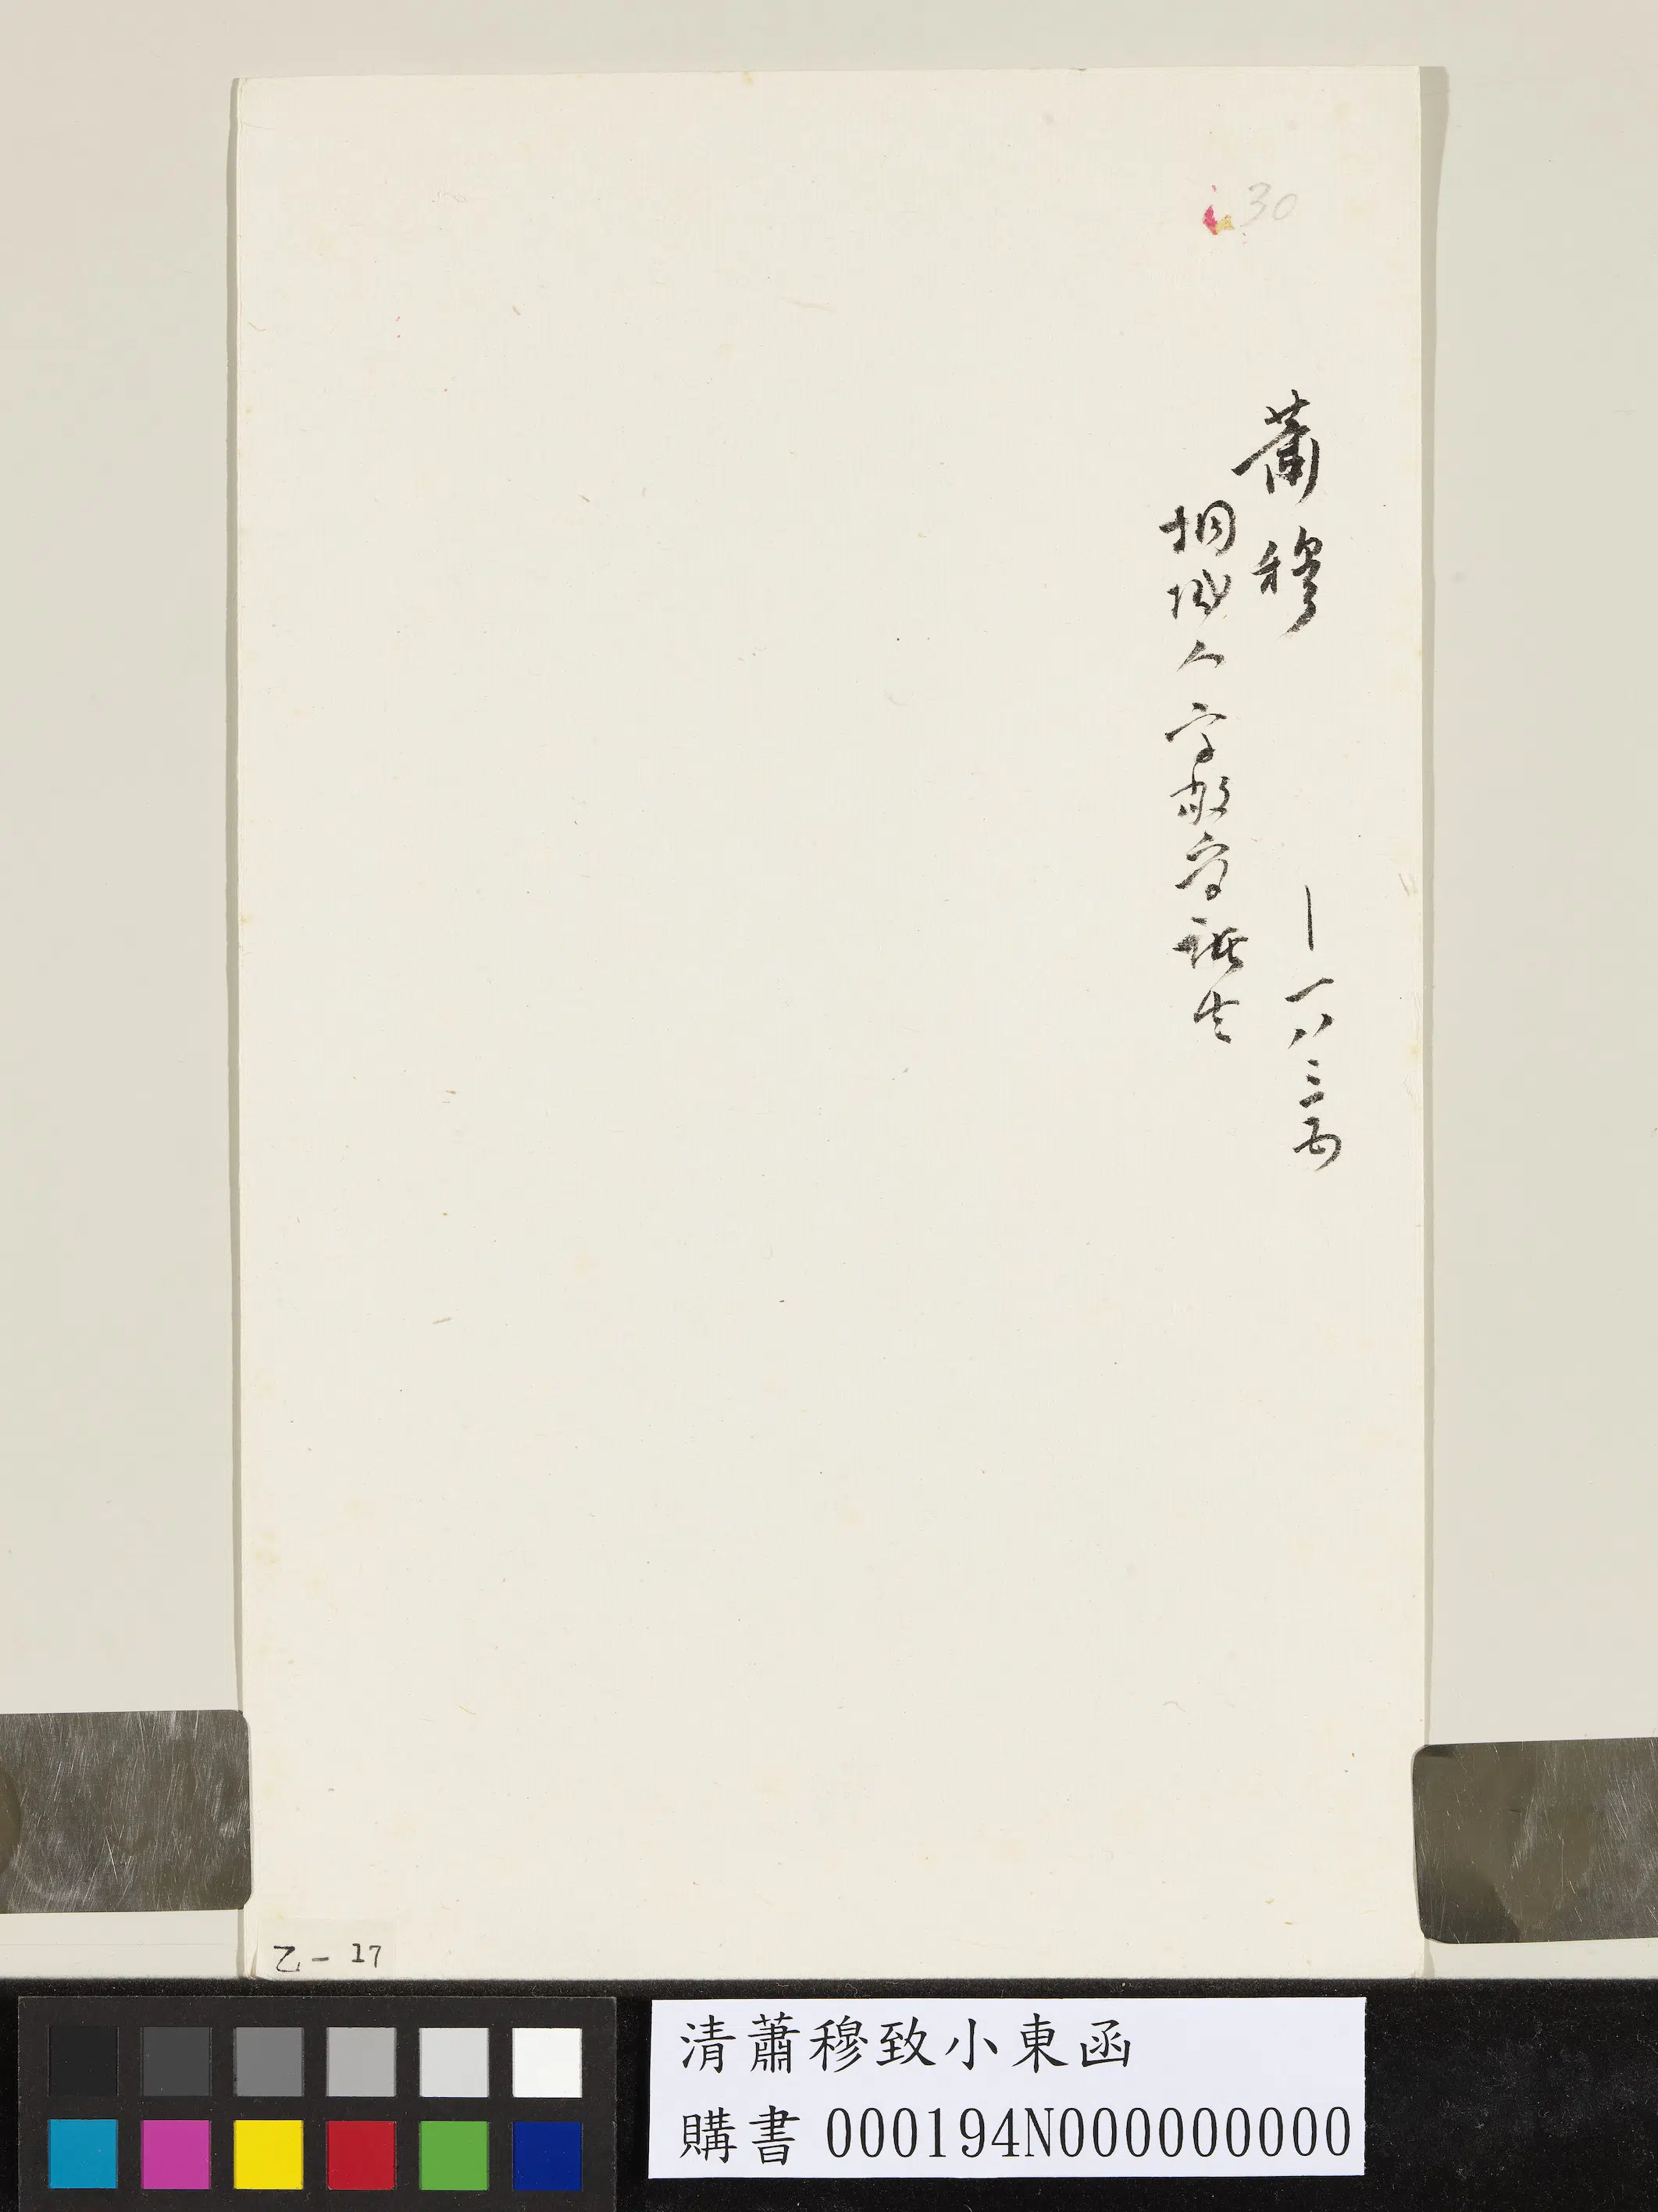 30
蕭穆 |一八三五
桐城人字敬孚諸生
乙-17
清蕭穆致小東函
購書 000194N000000000